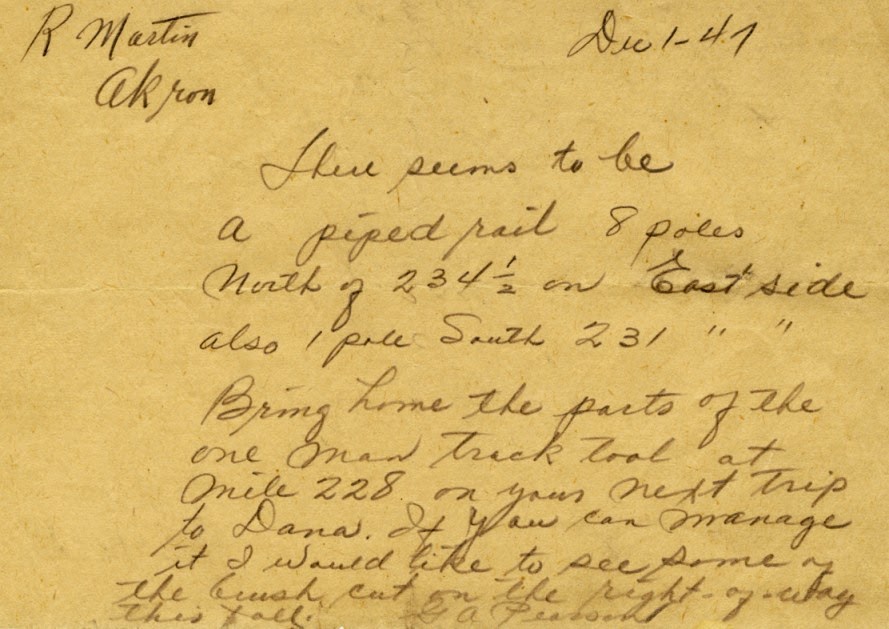 R Martin
Dec 1-47
Akron
There seems to be
a piped rail 8 poles
North of 234 1/2 on East side
also 1 pole South 231 " "
Bring home the parts of the
one man track tool at
mile 228 on your next trip
to Dana. If you can manage
it I would like to see some of
the brush cut on the right-of-way
this fall. G A Pearson